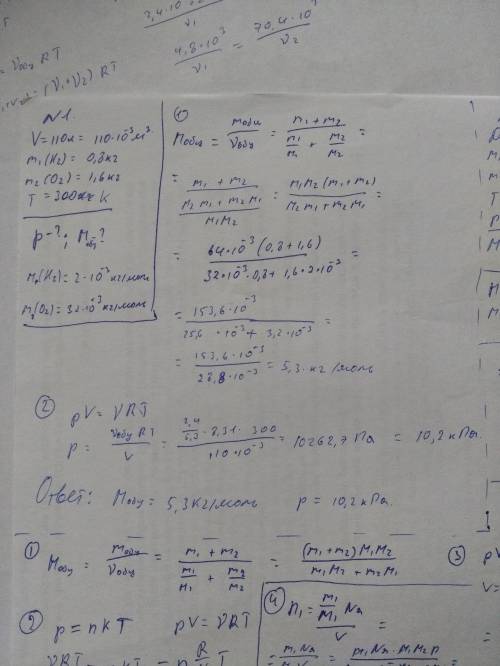 4,8·10³/ν₁ = 70,4·10³/ν₂
(ν₁+ν₂) RT
N1.
V=110л = 110·10⁻³ м³
m₁(H₂) = 0,8 кг
m₂(O₂) = 1,6 кг
T = 300 K
p-?; M общ?
M₁(H₂) = 2·10⁻³ кг/моль
M₂(O₂) = 32·10⁻³ кг/моль
①
Mобщ = mобщ/νобщ = (m₁+m₂)/(m₁/M₁ + m₂/M₂) =
= (m₁+m₂)/((M₂m₁+m₂M₁)/(M₁M₂)) = M₁M₂(m₁+m₂)/(M₂m₁+m₂M₁) =
= 64·10⁻³(0,8+1,6)/(32·10⁻³·0,8+1,6·2·10⁻³) =
= 153,6·10⁻³/(25,6·10⁻³+3,2·10⁻³) =
= 153,6·10⁻³/(28,8·10⁻³) = 5,3 кг/моль
② pV = νRT
p = νобщRT/V = (2,4/5,3·8,31·300)/(110·10⁻³) = 10262,7 Па = 10,2 кПа.
Ответ: Mобщ = 5,3 кг/моль p = 10,2 кПа.
① Mобщ = mобщ/νобщ = (m₁+m₂)/(m₁/M₁ + m₂/M₂) = (m₁+m₂)M₁M₂/(m₁M₂+m₂M₁)
③ pV=
V=
② p = nKT pV = νRT
④ n₁ = (m₁/M₁ Nа)/V =